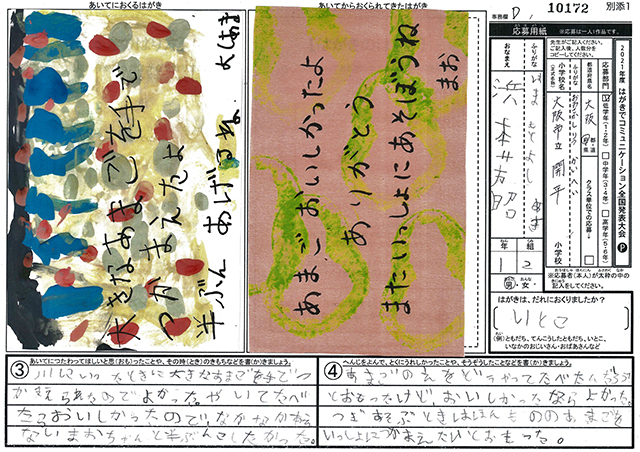 あいてにおくるはがき
大きなあまごを手で
つかまえたよ
半ぶん あげるね。
あいてからおくられてきたはがき
あまご おいしかったよ
ありがとう
またいっしょにあそぼうね
まお
事務欄 D 10172 別添1
応募用紙
※応募は一人一作品です。
2021年度 はがきでコミュニケーション全国発表大会
応募部門
低学年(1・2年)
中学年(3・4年)
高学年(5・6年)
都道府県名
大阪
都・道
府・県
クラス単位での応募↓
ふりがな
小学校名
(正式名称)
大阪市立 開平
小学校
※応募者(本人)が太枠の中の
記入をしてください。
ふりがな
おなまえ
年 組
1 2
男・女
はがきは、だれにおくりましたか?
いとこ
(例)ともだち、てんこうしたともだち、いとこ、
いなかのおじいさん・おばあさんなど
③ あいてにつたわってほしいと思(おも)ったことや、その時(とき)のきもちなどを書(か)きましょう。
川にいったときに大きなあまごを手でつ
かまえられたのでよかった。やいてたべ
たらおいしかったので、なかなかあえ
ないまおちゃんと半ぶんこしたかった。
④ へんじをよんで、とくにうれしかったことや、そうぞうしたことなどを書(か)きましょう。
あまごのえをどうやってたべたんだろう
とおもったけど、おいしかったならよかった。
つぎあそぶときはほんもののあまごを
いっしょにつかまえたいとおもった。